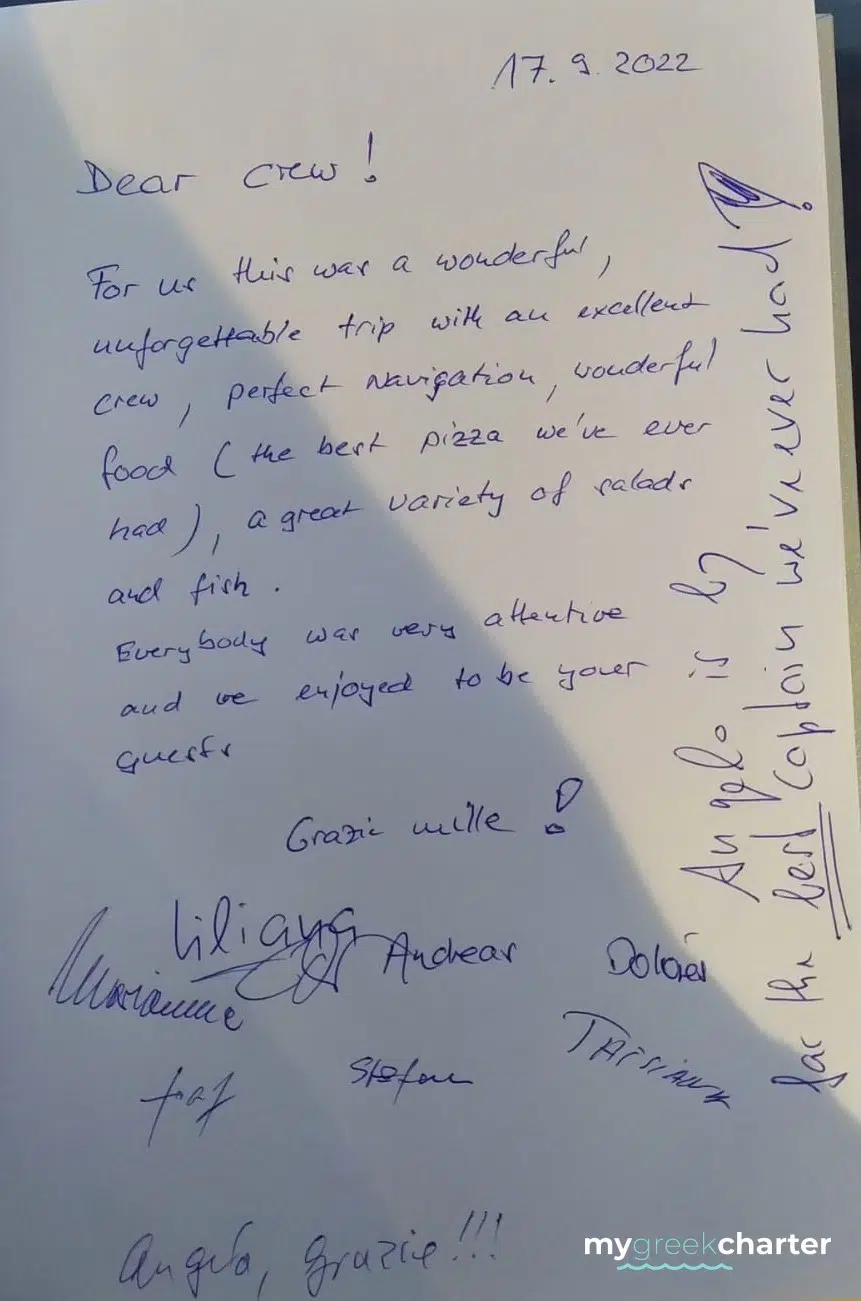 17. 9. 2022
Dear crew!
For us this was a wonderful,
unforgettable trip with an excellent
crew, perfect navigation, wonderful
food (the best pizza we've ever
had), a great variety of salads
and fish.
Everybody was very attentive
and we enjoyed to be your
guests
Grazie mille!
Liliana
Andreas
Marianne
Stefan
Angelo is by
far the best captain we've ever had!
Angelo, grazie!!!
mygreekcharter